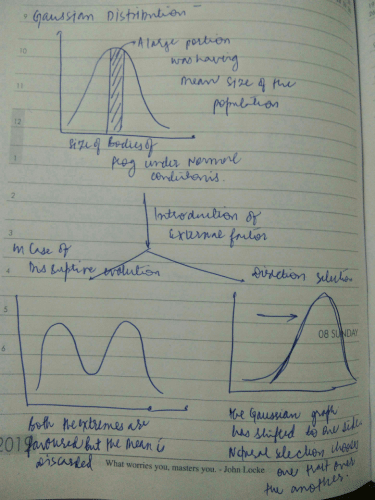 Gaussian Distribution
A large portion
was having
mean size of the
population
10
11
12
1
Size of Bodies of
Frog under Normal
conditions.
2
Introduction of
External factor
3
In Case of
Disruptive evolution
Direction selection
4
5
6
08 SUNDAY
Both the extremes are
favoured but the mean is
discarded
the Gaussian graph
has shifted to the side
Natural selection chooses
one trait over
the another.
2019
What worries you, masters you. - John Locke